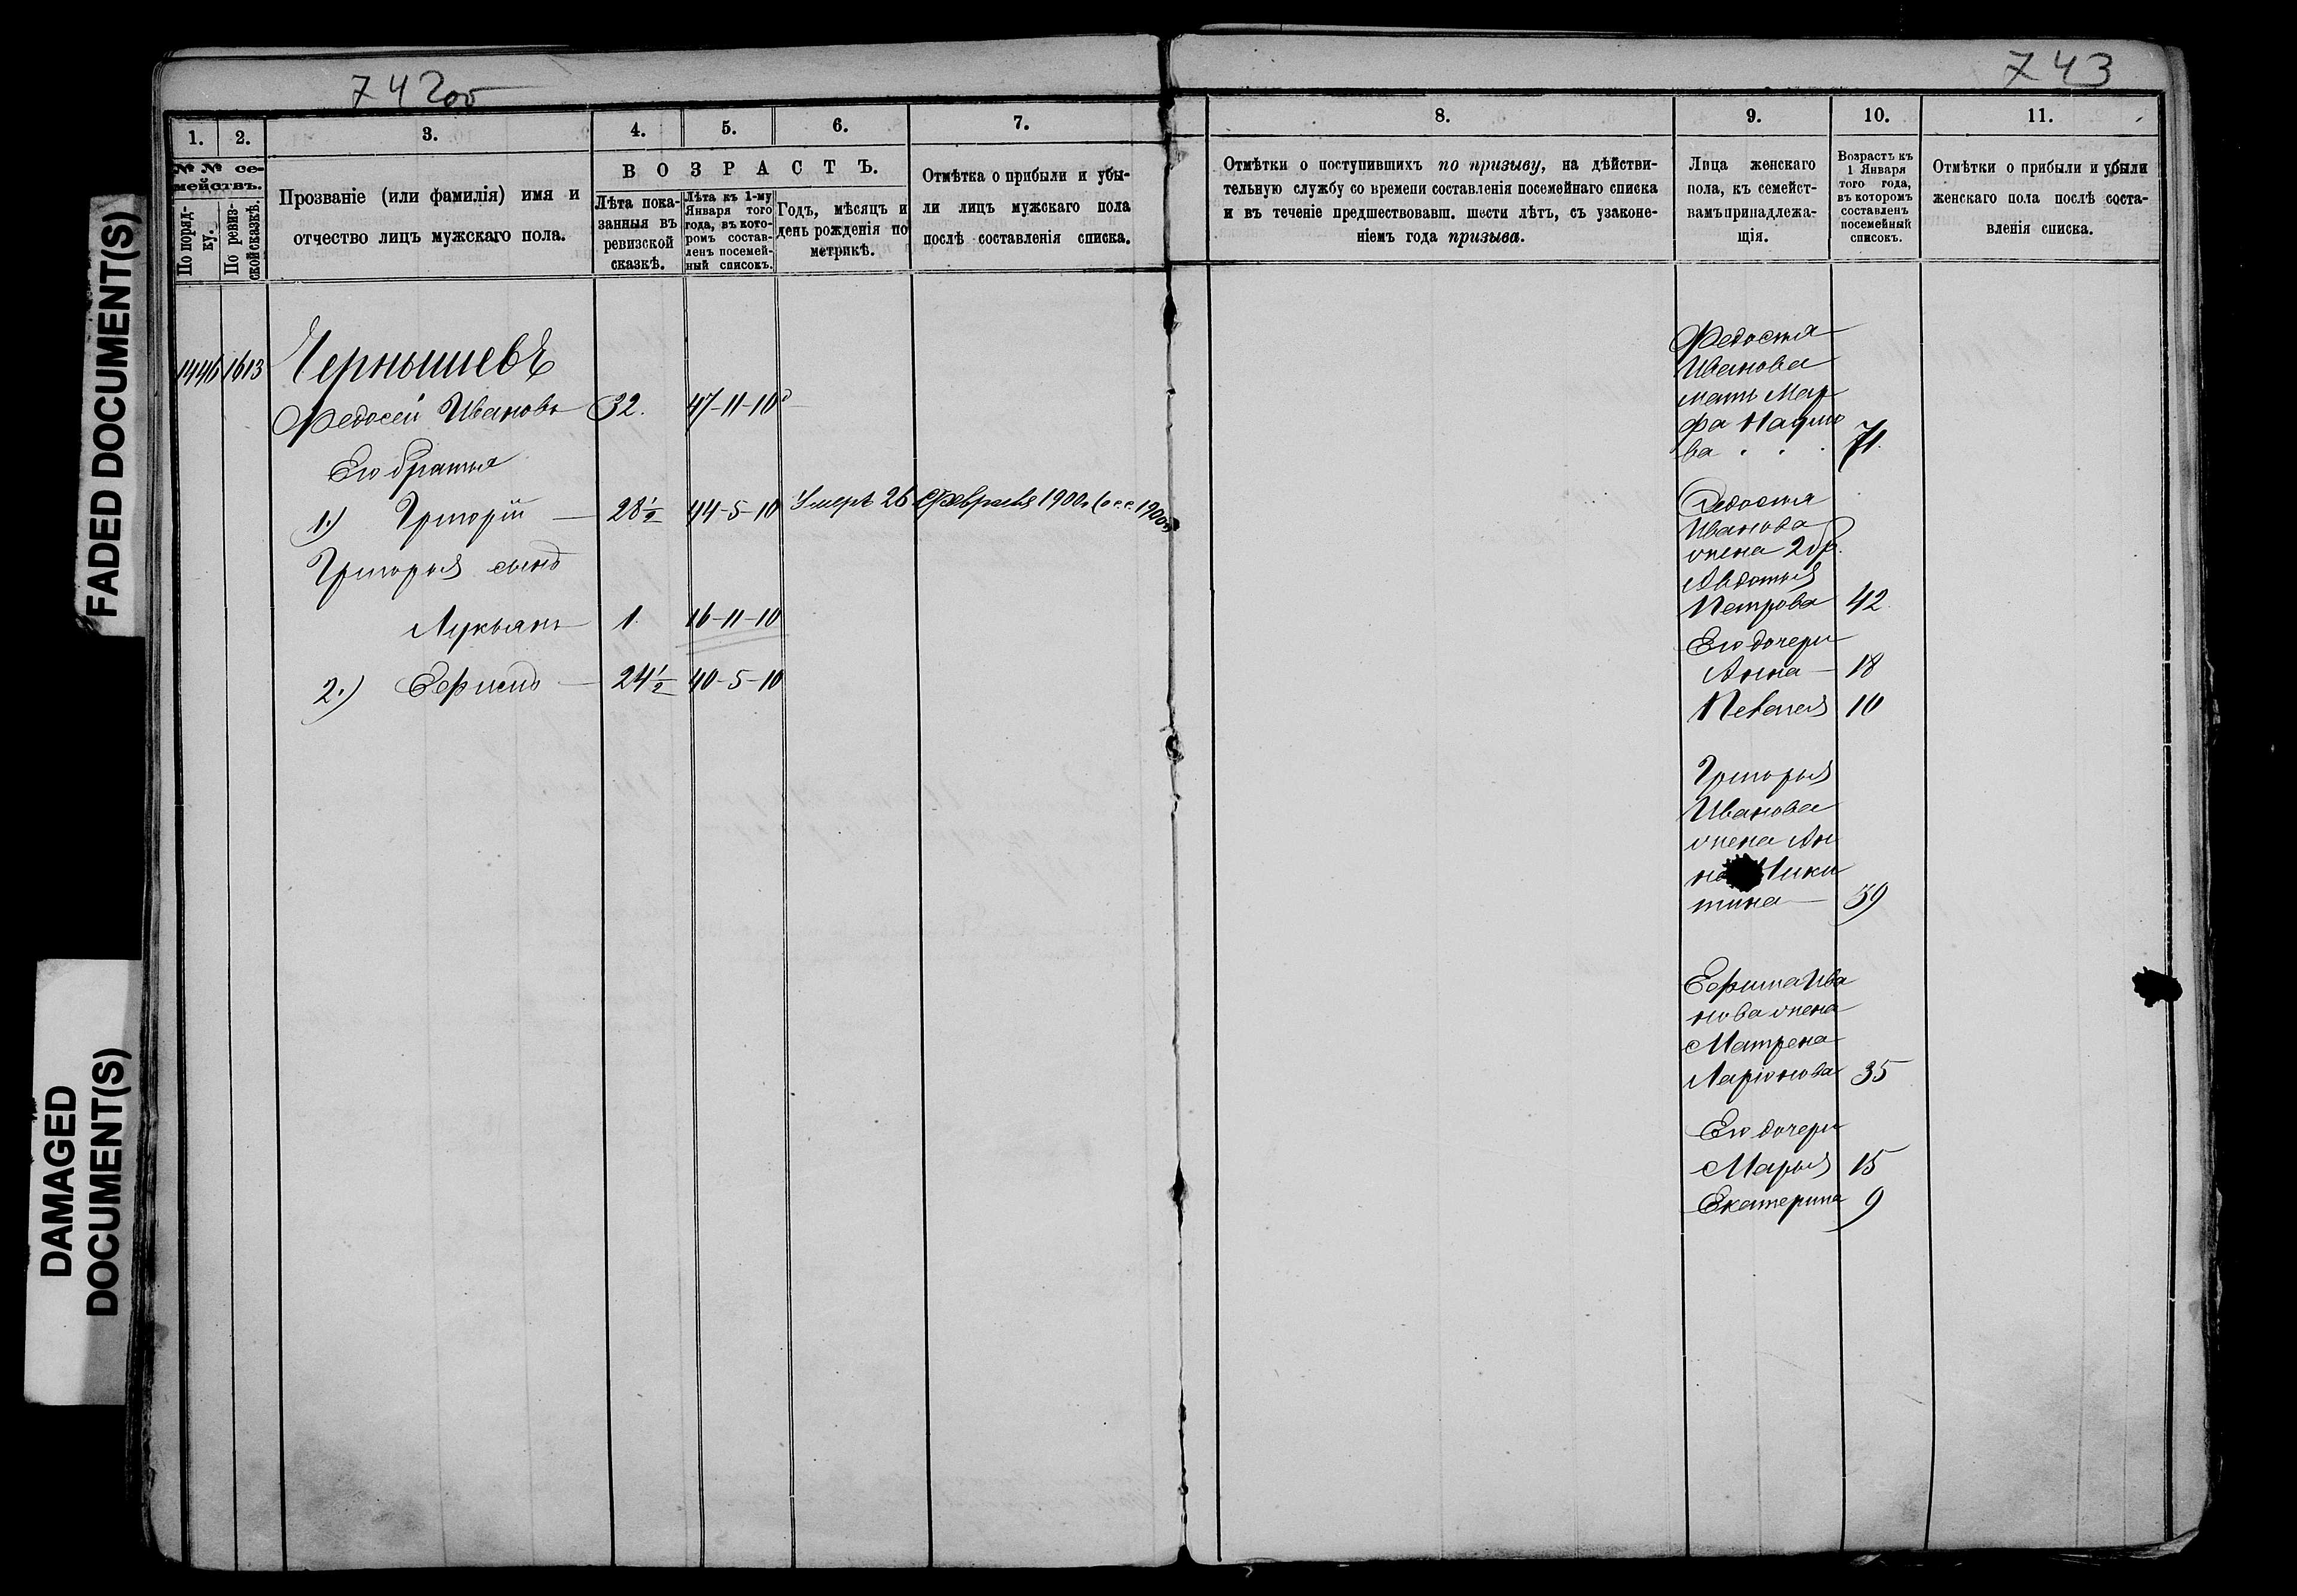 742об
743
FADED DOCUMENT(S)
DAMAGED
DOCUMENT(S)
1.
2.
3.
4.
5.
6.
7.
8.
9.
10.
11.
№ № се-
мействъ.
По поряд-
ку.
По ревиз-
ской сказкѣ.
Прозваніе (или фамилія) имя и
отчество лицъ мужскаго пола.
ВОЗРАСТЪ.
Лѣта пока-
занныя въ
ревизской
сказкѣ.
Лѣта къ 1-му
Января того
года, въ кото-
ромъ состав-
ленъ посемей-
ный списокъ.
Годъ, мѣсяцъ и
день рожденія по
метрикѣ.
Отмѣтка о прибыли и убы-
ли лицъ мужскаго пола
послѣ составленія списка.
Отмѣтки о поступившихъ по призыву, на дѣйстви-
тельную службу со времени составленія посемейнаго списка
и въ теченіе предшествовавш. шести лѣтъ, съ узаконе-
ніемъ года призыва.
Лица женскаго
пола, къ семейст-
вамъ принадлежа-
щія.
Возрастъ къ
1 Января
того года,
въ которомъ
составленъ
посемейный
списокъ.
Отмѣтки о прибыли и убыли
женскаго пола послѣ соста-
вленія списка.
1446 1613 Чернышевъ
Федосей Ивановъ 32. 47-11-10
Его братья
1.) Григорій — 28½ 44-5-10 Умеръ 26 Февраля 1900г.
Григорья сынъ
Лукьянъ 1. 16-11-10
2.) Ефимъ — 24½ 40-5-10
Федосея
Иванова
мать Мар
фа Наумо
ва . . . 71.
Федосея
Иванова
жена 2 бр.
Авдотья
Петрова 42
Его дочери
Анна — 18
Пелагея 10
Григорья
Иванова
жена Ан
на Ники
тина — 39
Ефима Ива
нова жена
Матрена
Ларіонова 35
Его дочери
Марья 15
Екатерина 9